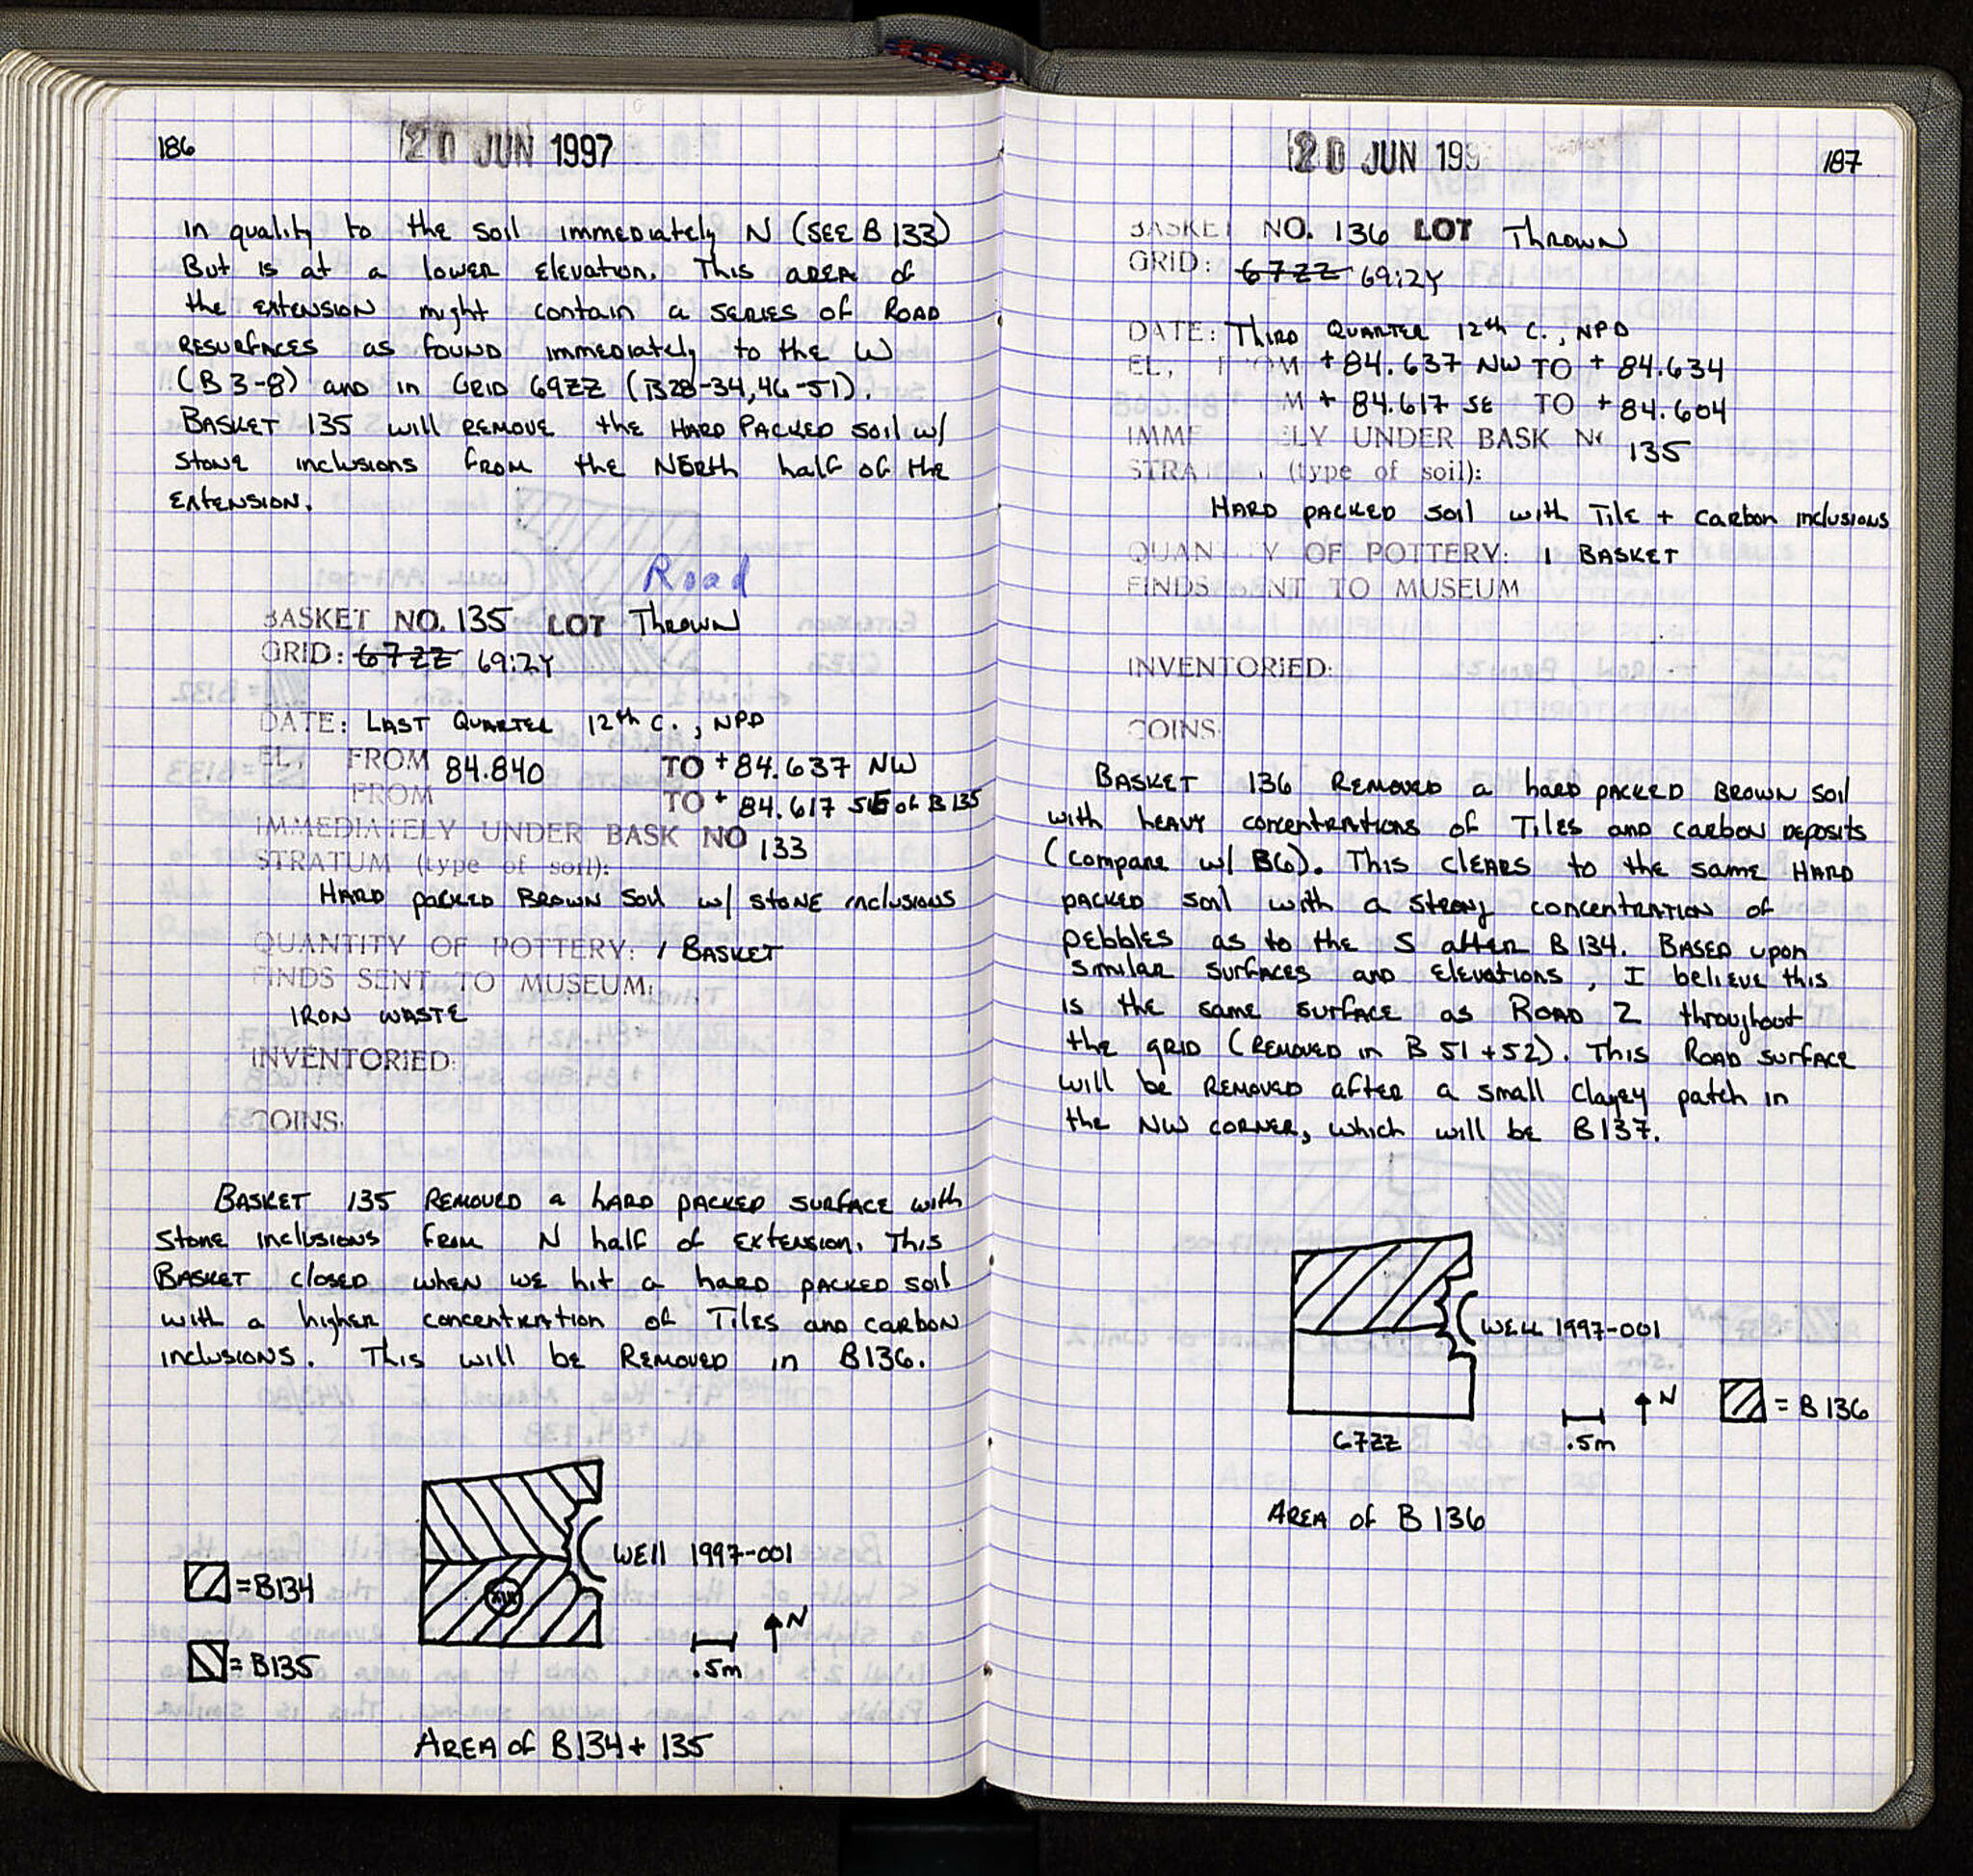 186
20 JUN 1997
in quality to the soil immediately N (SEE B 133)
But is at a lower elevation. This area of
the extension might contain a series of Road
Resurfaces as found immediately to the W
(B 3-8) and in Grid 69ZZ (B28-34, 46-51).
Basket 135 will remove the Hard Packed soil w/
stone inclusions from the North half of the
extension.
Road
BASKET NO. 135 LOT Thrown
GRID: 67ZZ 69:2Y
DATE: Last Quarter 12th C., NPD
EL, FROM 84.840 TO +84.637 NW
FROM TO + 84.617 SE of B 135
IMMEDIATELY UNDER BASK NO 133
STRATUM (type of soil):
Hard packed Brown Soil w/ stone inclusions
QUANTITY OF POTTERY: 1 Basket
FINDS SENT TO MUSEUM:
Iron Waste
INVENTORIED:
COINS:
Basket 135 Removed a hard packed surface with
stone inclusions from N half of extension. This
Basket closed when we hit a hard packed soil
with a higher concentration of Tiles and carbon
inclusions. This will be Removed in B136.
Well 1997-001
= B134
= B135
N
.5m
Area of B134 + 135
187
20 JUN 199
BASKET NO. 136 LOT Thrown
GRID: 67ZZ 69:2Y
DATE: Third Quarter 12th C., NPD
EL, FROM +84.637 NW TO +84.634
M +84.617 SE TO +84.604
IMMEDIATELY UNDER BASK NO 135
STRATUM (type of soil):
Hard packed soil with Tile + carbon inclusions
QUANTITY OF POTTERY: 1 Basket
FINDS SENT TO MUSEUM
INVENTORIED:
COINS:
Basket 136 Removed a hard packed Brown soil
with heavy concentrations of Tiles and carbon deposits
(compare w/ B6). This clears to the same Hard
packed soil with a strong concentration of
pebbles as to the S after B 134. Based upon
similar surfaces and elevations, I believe this
is the same surface as Road 2 throughout
the grid (Removed in B 51 + 52). This Road surface
will be Removed after a small clayey patch in
the NW corner, which will be B137.
Well 1997-001
N
= B 136
67ZZ
.5m
Area of B 136